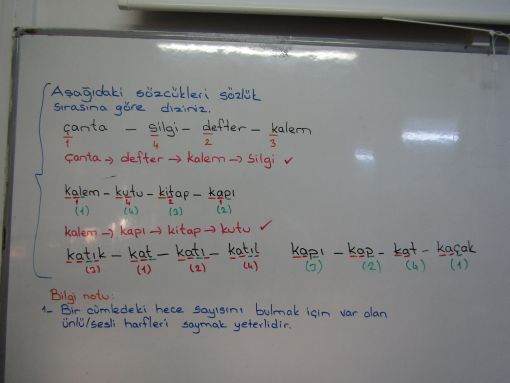 Aşağıdaki sözcükleri sözlük
sırasına göre diziniz.
çanta – silgi – defter – kalem
1 4 2 3
çanta → defter → kalem → silgi ✓
kalem – kutu – kitap – kapı
1 4 2 1
(1) (4) (3) (2)
kalem → kapı → kitap → kutu ✓
katık – kat – katı – katıl kapı – kap – kat – kaçak
(3) (1) (2) (4) (3) (2) (4) (1)
Bilgi notu:
1– Bir cümledeki hece sayısını bulmak için var olan
ünlü/sesli harfleri saymak yeterlidir.